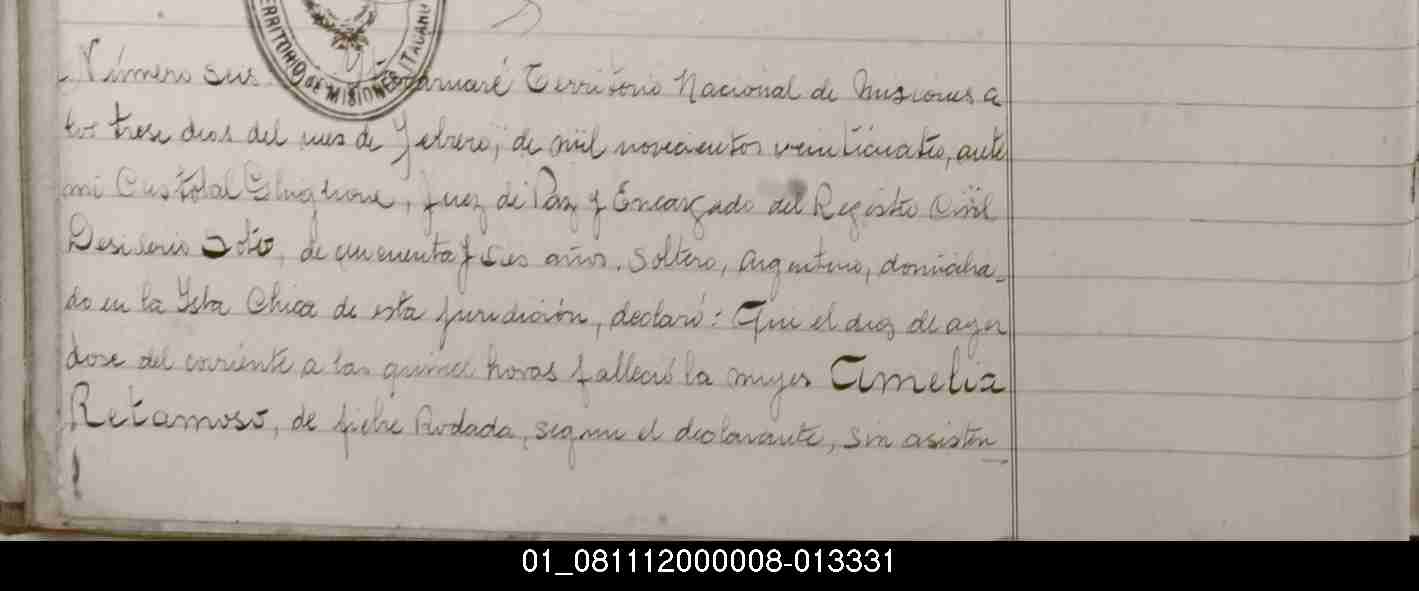 TERRITORIO DE MISIONES ITACARU
Número seis Itacaruaré Territorio Nacional de Misiones a
los trese dias del mes de Febrero, de mil novecientos veinticuatro, ante
mi Cristobal, Juez de Paz y Encargado del Registro Civil
Desiderio Soto, de cincuenta y seis años, soltero, Argentino, domicilia-
do en la Ysla Chica de esta juridición, declaró: Que el dia de ayer
dose del corriente a las quince horas falleció la mujer Amelia
Retamoso, de fiebre Rodada, segun el declarante, sin asisten
01_081112000008-013331